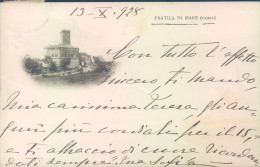 13-X-928
PRATICA DI MARE (ROMA)
Con tutto l'affetto
sincero ti mando,
mia carissima Teresa gli au-
guri più cordiali per il 15,-
e ti abbraccio di cuore ricordan
doti sempre. Tua Sofia